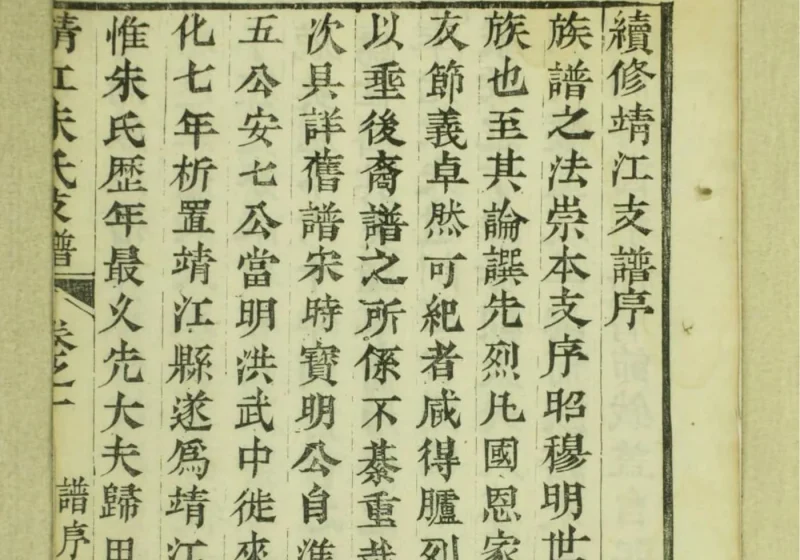 續修靖江支譜序
族譜之法崇本支序昭穆明世
族也至其論譔先烈凡國恩家
友節義卓然可紀者咸得臚列
以垂後裔譜之所係不綦重哉
次具詳舊譜宋時寶明公自淮
五公安七公當明洪武中徙來
化七年析置靖江縣遂爲靖江
惟朱氏歴年最久先大夫歸田
靖江朱氏支譜 卷之一 譜序